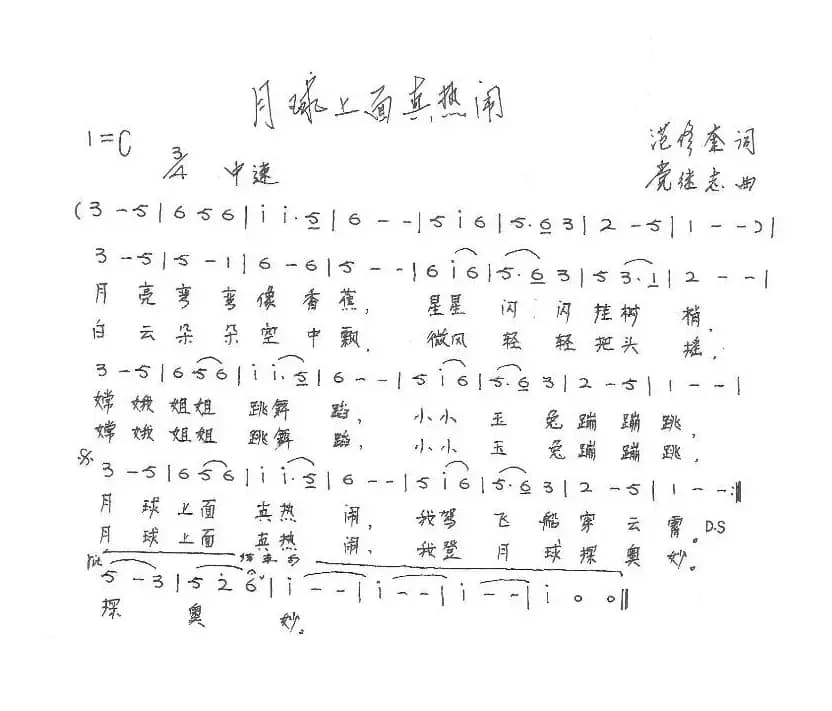 月球上面真热闹
1=C 3/4 中速
范修奎 词
党继志 曲
(3 - 5 | 6 5 6 | i i· 5 | 6 - - | 5 i 6 | 5· 6 3 | 2 - 5 | 1 - -) |
3 - 5 | 5 - 1 | 6 - 6 | 5 - - | 6 i 6 | 5· 6 3 | 5 3· 1 | 2 - - |
月亮弯弯像香蕉，星星闪闪挂树梢，
白云朵朵空中飘，微风轻轻把头摇，
3 - 5 | 6 5 6 | i i· 5 | 6 - - | 5 i 6 | 5· 6 3 | 2 - 5 | 1 - - |
嫦娥姐姐跳舞蹈，小小玉兔蹦蹦跳，
嫦娥姐姐跳舞蹈，小小玉兔蹦蹦跳，
3 - 5 | 6 5 6 | i i· 5 | 6 - - | 5 i 6 | 5· 6 3 | 2 - 5 | 1 - - :||
月球上面真热闹，我驾飞船穿云霄。D.S
月球上面真热闹、我登月球探奥妙。
结束句
5 - 3 | 5 2 6 | i - - | i - - | i - - | i 0 0 ||
探奥妙。